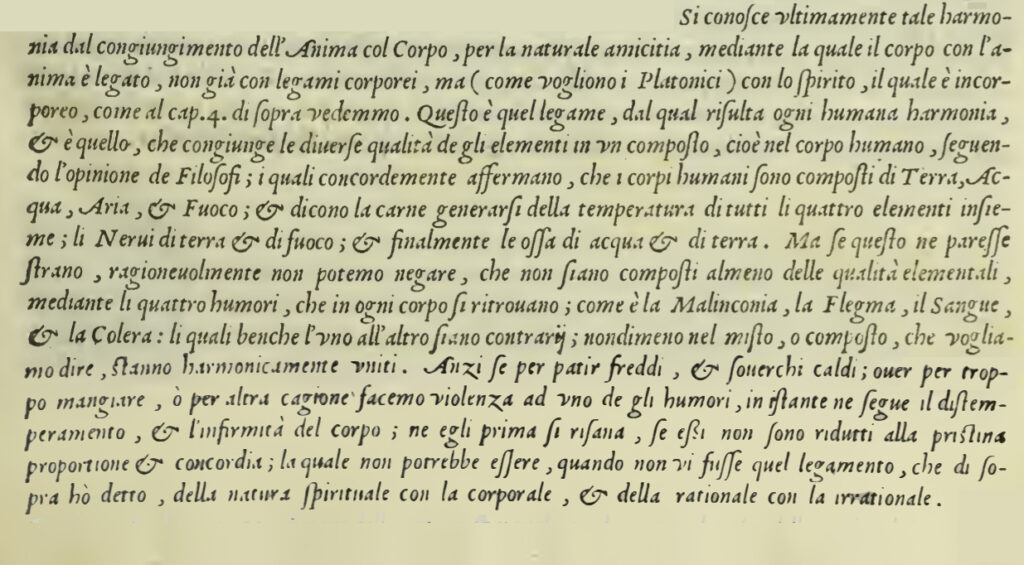 Si conoſce vltimamente tale harmo-
nia dal congiungimento dell'Anima col Corpo, per la naturale amicitia, mediante la quale il corpo con l'a-
nima è legato, non già con legami corporei, ma (come vogliono i Platonici) con lo ſpirito, il quale è incor-
poreo, come al cap. 4. di ſopra vedemmo. Queſto è quel legame, dal qual riſulta ogni humana harmonia,
& è quello, che congiunge le diuerſe qualità de gli elementi in vn compoſto, cioè nel corpo humano, ſeguen-
do l'opinione de Filoſofi; i quali concordemente affermano, che i corpi humani ſono compoſti di Terra, Ac-
qua, Aria, & Fuoco; & dicono la carne generarſi della temperatura di tutti li quattro elementi inſie-
me; li Nerui di terra & di fuoco; & finalmente le oſſa di acqua & di terra. Ma ſe queſto ne pareſſe
ſtrano, ragioneuolmente non potemo negare, che non ſiano compoſti almeno delle qualità elementali,
mediante li quattro humori, che in ogni corpo ſi ritrouano; come è la Malinconia, la Flegma, il Sangue,
& la Colera: li quali benche l'vno all'altro ſiano contrarij; nondimeno nel miſto, o compoſto, che voglia-
mo dire, ſtanno harmonicamente vniti. Anzi ſe per patir freddi, & ſouerchi caldi; ouer per trop-
po mangiare, ò per altra cagione facemo violenza ad vno de gli humori, in iſtante ne ſegue il diſtem-
peramento, & l'infirmità del corpo; ne egli prima ſi riſana, ſe eſſi non ſono ridutti alla priſtina
proportione & concordia; la quale non potrebbe eſſere, quando non vi fuſſe quel legamento, che di ſo-
pra hò detto, della natura ſpirituale con la corporale, & della rationale con la irrationale.